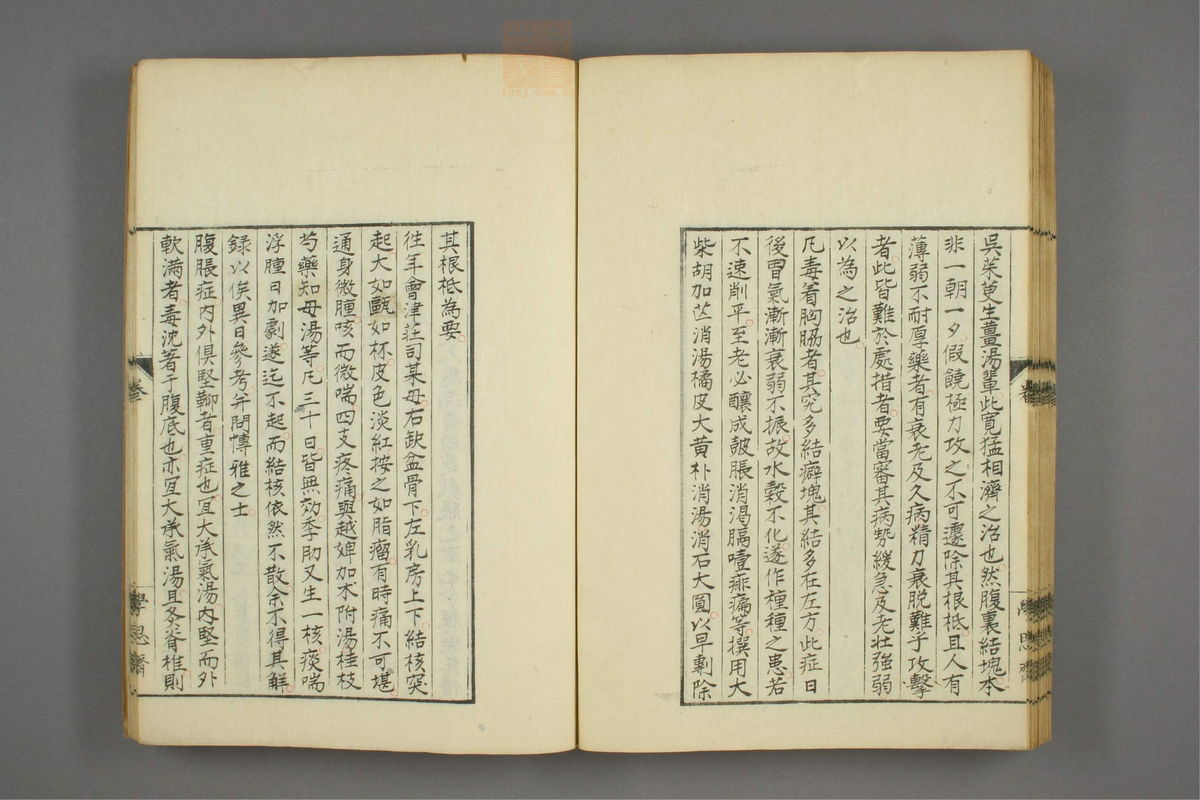 吳茱萸生薑湯輩此寬猛相濟之治也然腹裏結塊本
非一朝一夕假饒極力攻之不可遽除其根柢且人有
薄弱不耐厚藥者有衰老及久病精力衰脫難于攻擊
者此皆難於處措者要當審其病勢緩急及老壯強弱
以為之治也
凡毒着胸脇者其究多結癖塊其結多在左方此症日
後胃氣漸漸衰弱不振故水穀不化遂作種種之患若
不速削平至老必釀成皷脹消渴膈噎痱痛等撰用大
柴胡加芒消湯橘皮大黃朴消湯消石大圓以早剿除
其根柢為要
往年會津莊司某母右缺盆骨下左乳房上下結核突
起大如甌如杯皮色淡紅按之如脂瘤有時痛不可堪
通身微腫咳而微喘四支疼痛與越婢加朮附湯桂枝
芍藥知母湯等凡三十日皆無効季肋又生一核痰喘
浮腫日加劇遂迄不起而結核依然不散余不得其解
錄以俟異日參考并問博雅之士
腹脹症內外俱堅鞕者重症也宜大承氣湯內堅而外
軟滿者毒沈著于腹底也亦宜大承氣湯且灸脊椎則
卷
學思齋